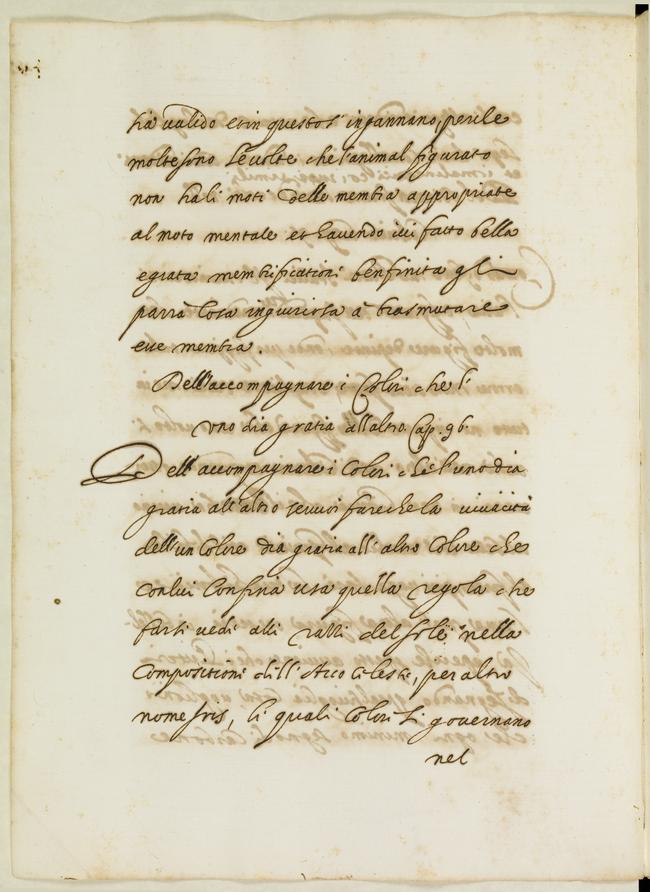 ha valido et in questo s'ingannano, perche
molte sono le volte che l'animal figurato
non ha li moti delle membra appropriate
al moto mentale et havendo lui fatto bella
e grata membrificationi ben finita gli
parrà Cosa ingiuriosa à trasmutare
esse membra.
Dell'accompagnare i Colori che l'
uno dia gratia all'altro. Cap. 96.
Dell'accompagnare i Colori che l'uno dia
gratia all'altro se vuoi fare che la vivacità
dell'un Colore dia gratia all'altro Colore che
con lui Confina usa quella regola che
farsi vedi alli razzi del sole nella
Compositioni dell'Arco Celeste, per altro
nome Iris, li quali Colori si governano
nel